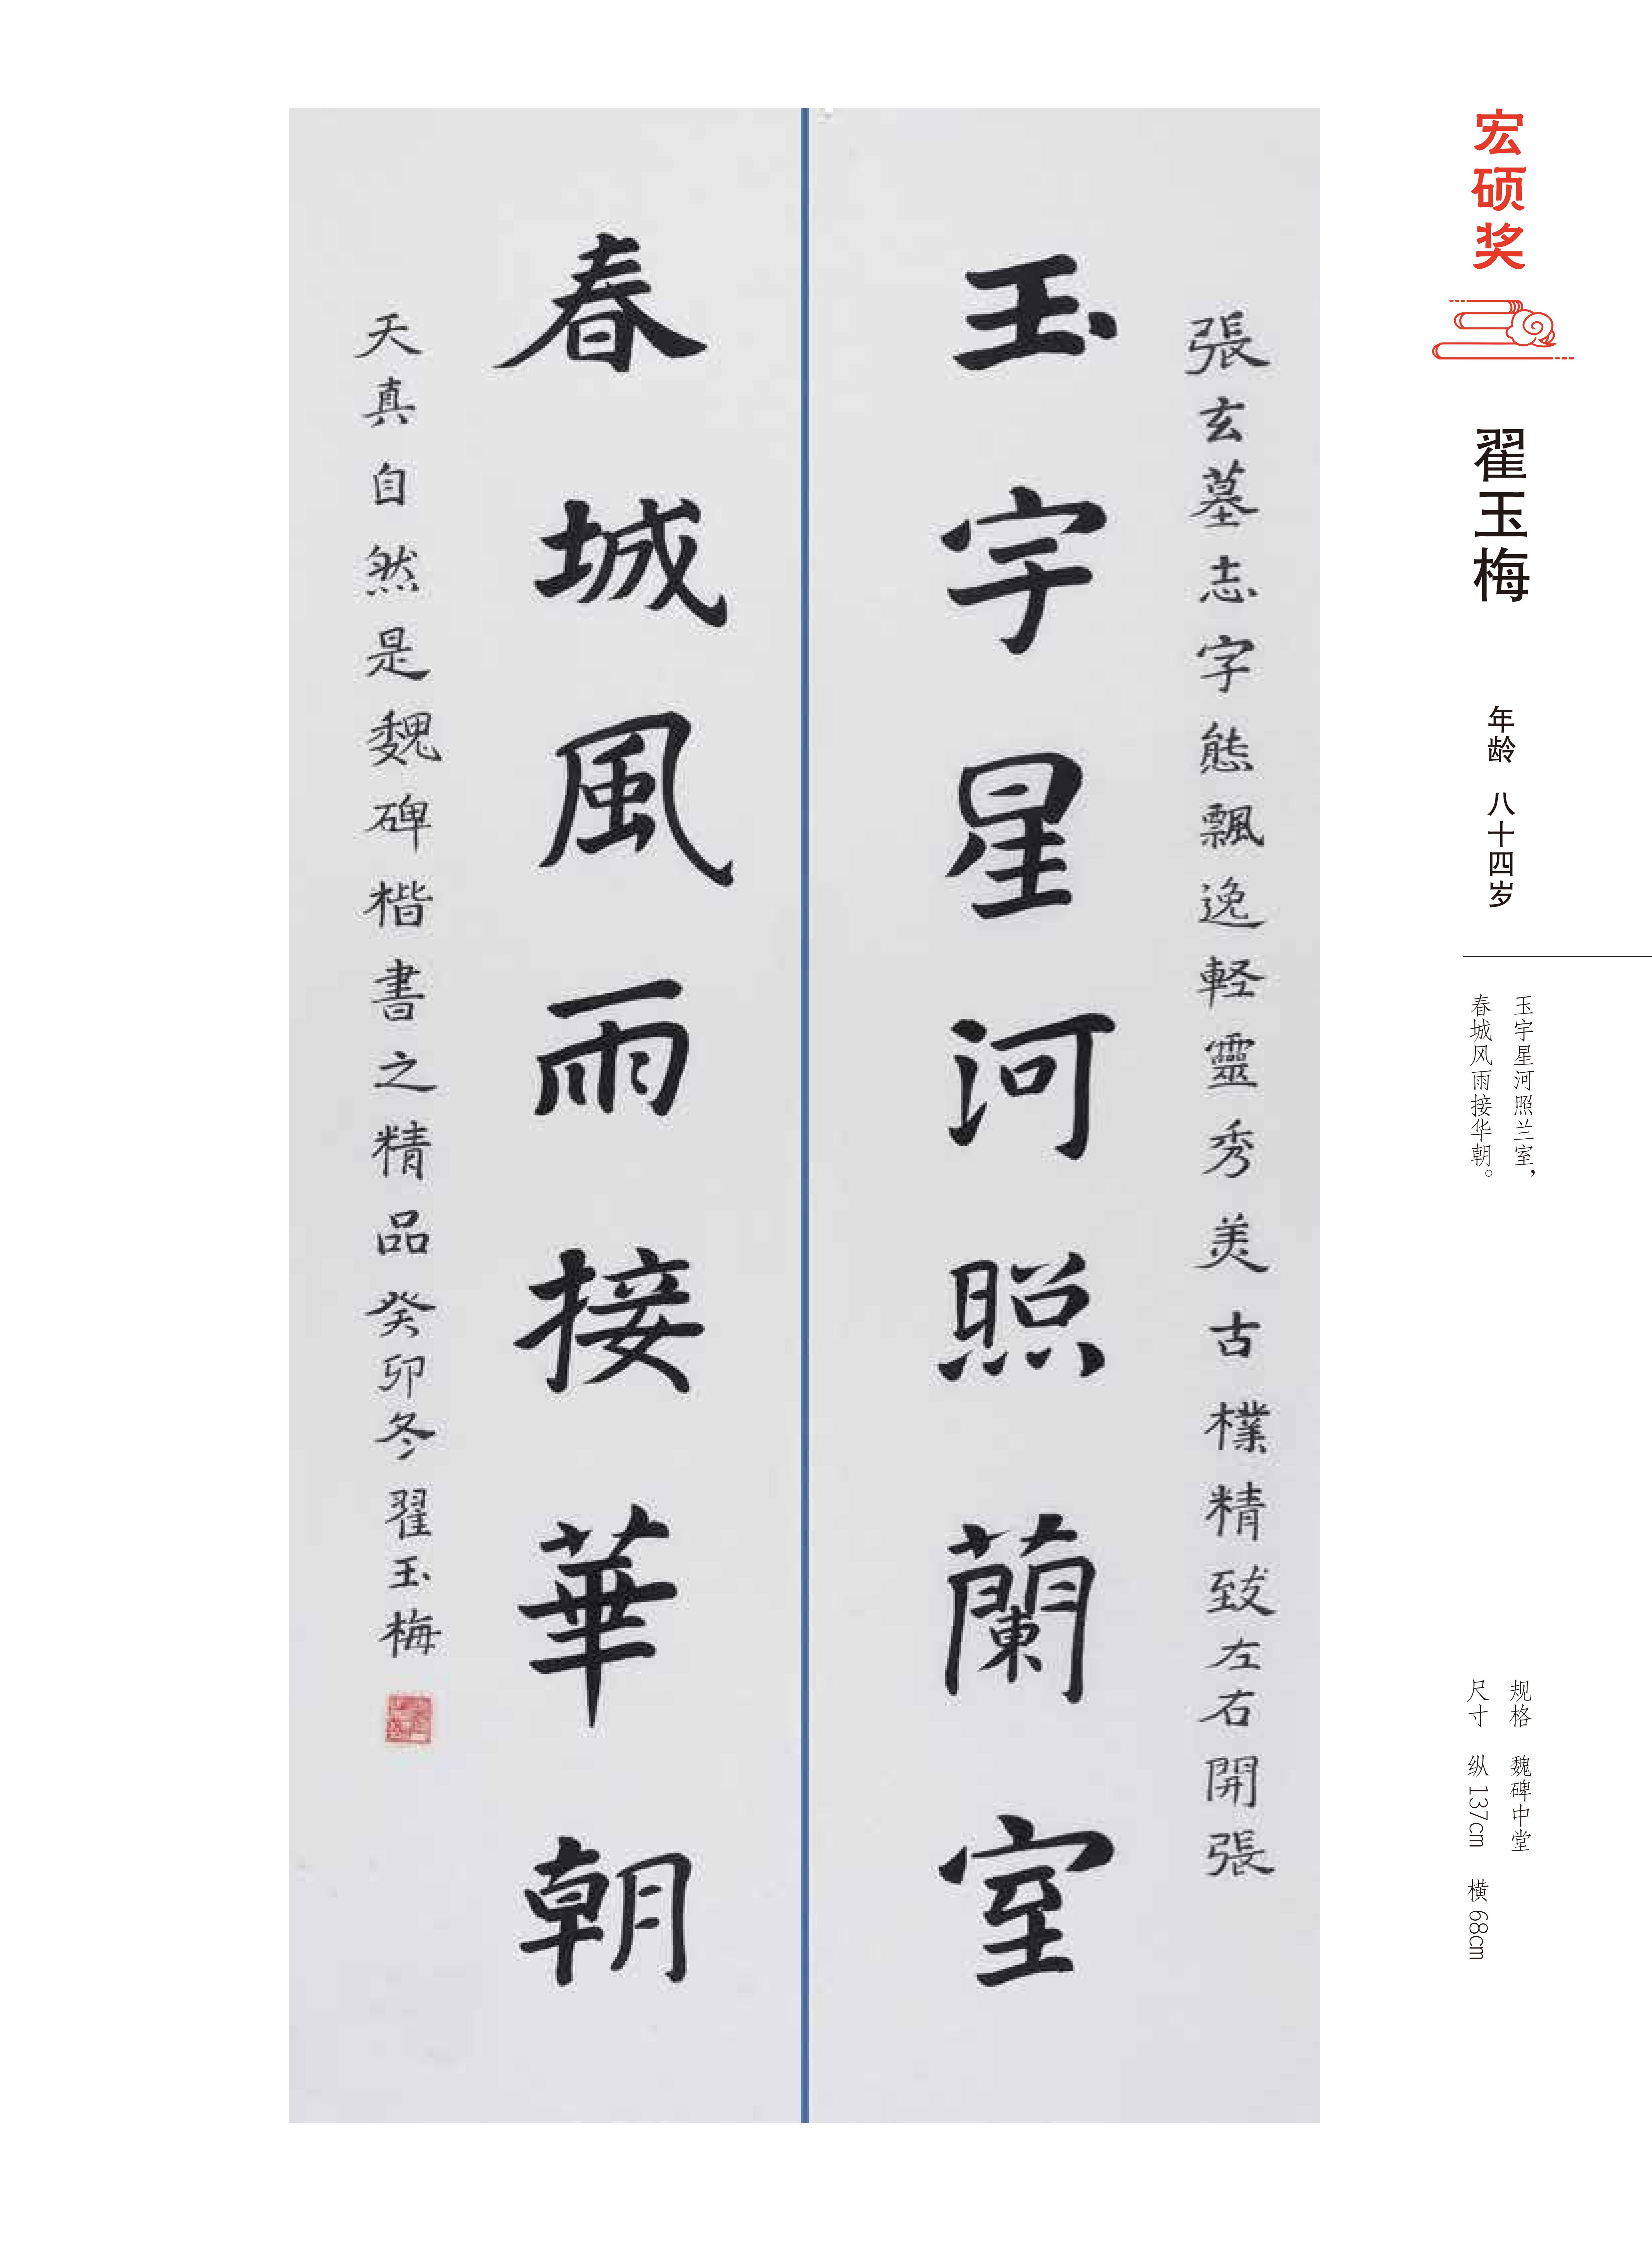 宏硕奖
翟玉梅
年龄 八十四岁
玉宇星河照兰室，
春城风雨接华朝。
规格 魏碑中堂
尺寸 纵 137cm 横 68cm
張玄墓志字態飄逸軽靈秀美古樸精致左右開張
玉宇星河照蘭室
春城風雨接華朝
天真自然是魏碑楷書之精品癸卯冬翟玉梅